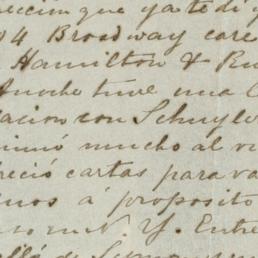 reccion que ya te di y
04 Broadway care
Hamilton & Ru
Anoche tuve una
acion con Schuyle
nimó mucho al v
reció cartas para va
inos á propósito
so en N. Y. Entre